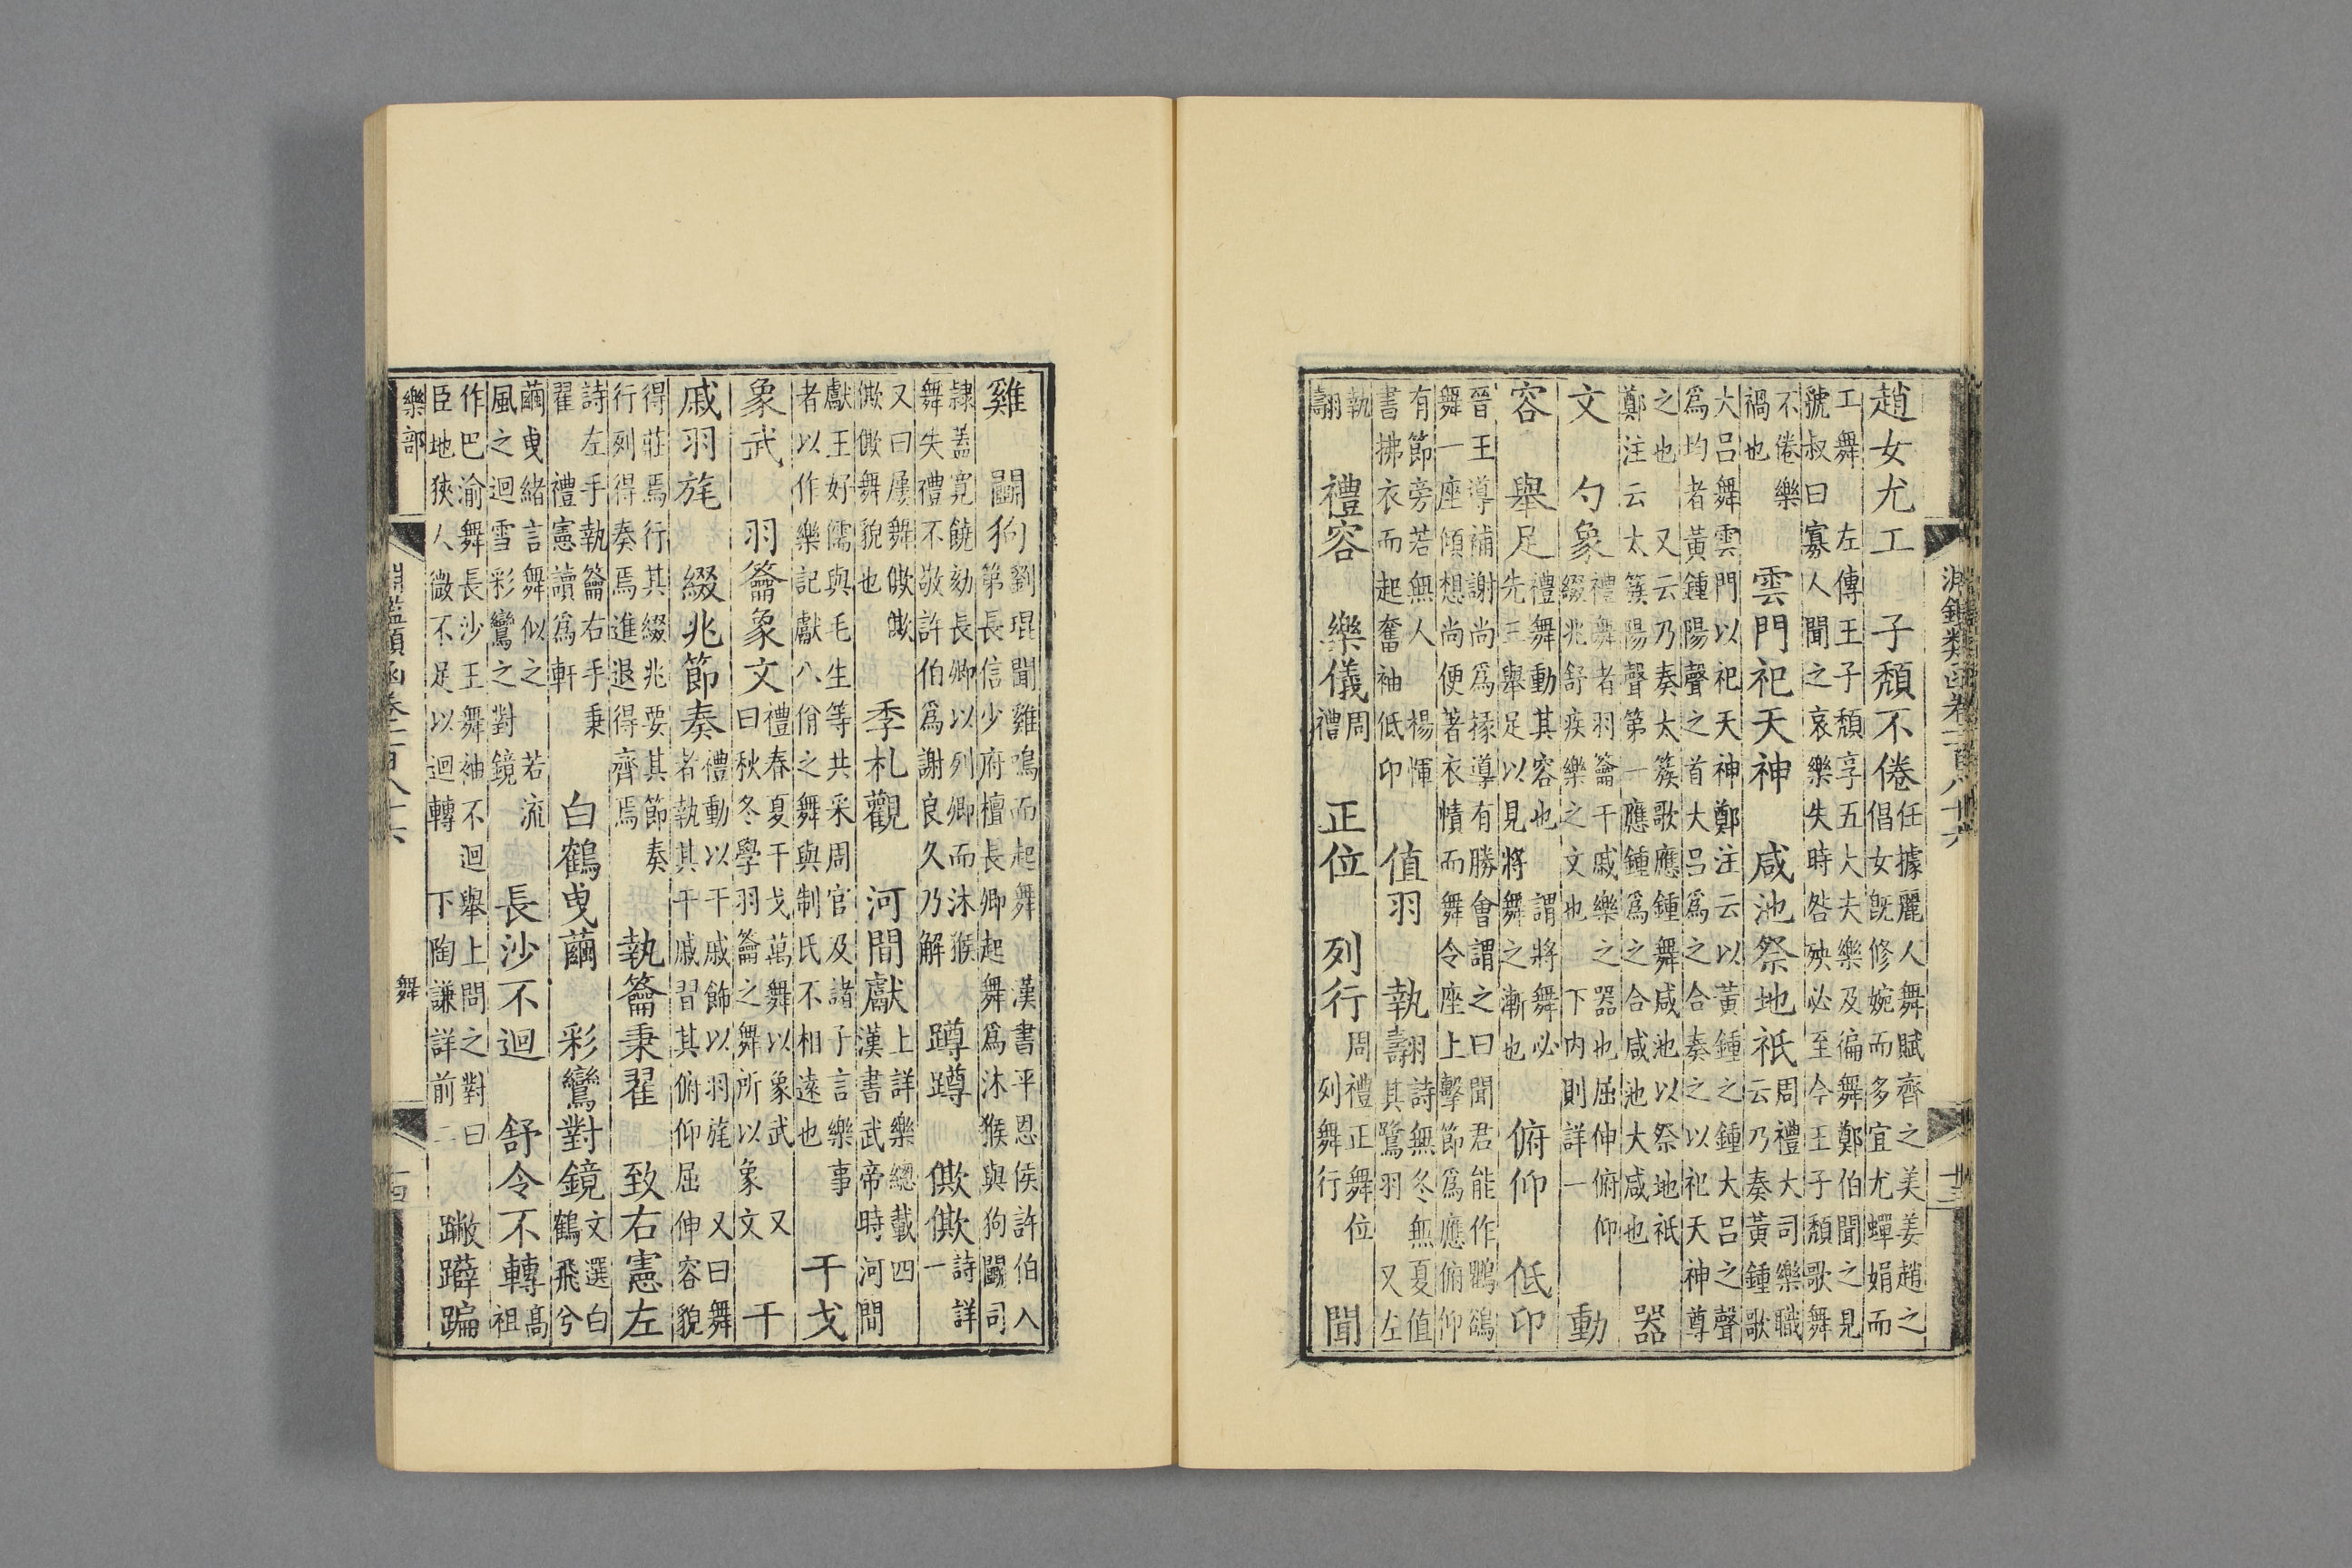 淵鑑類函卷一百八十六 十三
趙女尤工 子頹不倦 任據麗人舞賦齊之美姜趙之倡女旣修婉而多宜尤蟬娟而
工舞 左傳王子頹享五大夫樂及徧舞鄭伯聞之見虢叔曰寡人聞之哀樂失時咎殃必至今王子頹歌舞
不倦樂禍也 雲門祀天神 咸池祭地祇 周禮大司樂職云乃奏黃鍾歌
大呂舞雲門以祀天神鄭注云以黃鍾之鍾大呂之聲爲均者黃鍾陽聲之首大呂爲之合奏之以祀天神尊
之也 又云乃奏太簇歌應鍾舞咸池以祭地祇鄭注云太簇陽聲第一應鍾爲之合咸池大咸也 器
文 勺象 禮舞者羽籥干戚樂之器也屈伸俯仰綴兆舒疾樂之文也 下內則詳一 動
容 舉足 禮舞動其容也 謂將舞必先王舉足以見將舞之漸也 俯仰 低卬
晉王導補謝尚爲掾導有勝會謂之曰聞君能作鸜鵒舞一座傾想尚便著衣幘而舞令座上擊節爲應俯仰
有節旁若無人 楊惲書拂衣而起奮袖低卬 値羽 執翿 詩無冬無夏値其鷺羽 又左
執翿 禮容 樂儀 周禮 正位 列行 周禮正舞位列舞行 聞
雞 鬭狗 劉琨聞雞鳴而起舞 漢書平恩侯許伯入第長信少府檀長卿起舞爲沐猴與狗鬭司
隷蓋寬饒劾長卿以列卿而沐猴舞失禮不敬許伯爲謝良久乃解 蹲蹲 僛僛 詩詳一
又曰屢舞僛僛僛僛舞貌也 季札觀 河間獻 上詳樂總載四漢書武帝時河間
獻王好儒與毛生等共采周官及諸子言樂事者以作樂記獻八佾之舞與制氏不相遠也 干戈
象武 羽籥象文 禮春夏干戈萬舞以象武 又曰秋冬學羽籥之舞所以象文 干
戚羽旄 綴兆節奏 禮動以干戚飾以羽旄 又曰舞者執其干戚習其俯仰屈伸容貌
得莊焉行其綴兆要其節奏行列得奏焉進退得齊焉 執籥秉翟 致右憲左
詩左手執籥右手秉翟 禮憲讀爲軒 白鶴曳繭 彩鸞對鏡 文選白鶴飛兮
繭曳緒言舞似之 若流風之迴雪彩鸞之對鏡 長沙不迴 舒令不轉 高祖
作巴渝舞長沙王舞袖不迴舉上問之對曰臣地狹人微不足以迴轉 下陶謙詳前二 躃蹁
樂部 淵鑑類函卷一百八十六 舞 十四